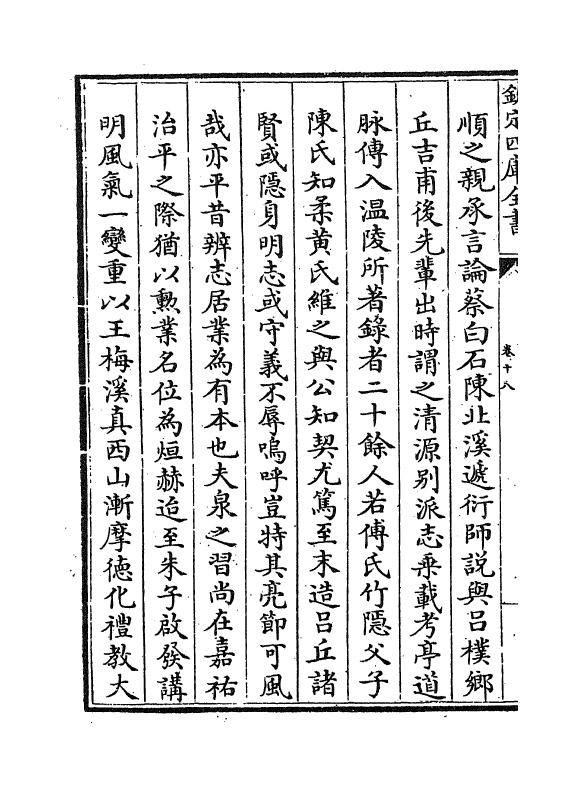 欽定四庫全書
卷十八
順之親承言論蔡白石陳北溪遞衍師說與呂樸鄉
丘吉甫後先輩出時謂之清源别派志乘載考亭道
脉傳入温陵所著錄者二十餘人若傅氏竹隱父子
陳氏知柔黄氏維之與公知契尤篤至末造呂丘諸
賢或隱身明志或守義不辱嗚呼豈特其亮節可風
哉亦平昔辨志居業為有本也夫泉之習尚在嘉祐
治平之際猶以勲業名位為烜赫迨至朱子啟發講
明風氣一變重以王梅溪真西山漸摩德化禮教大